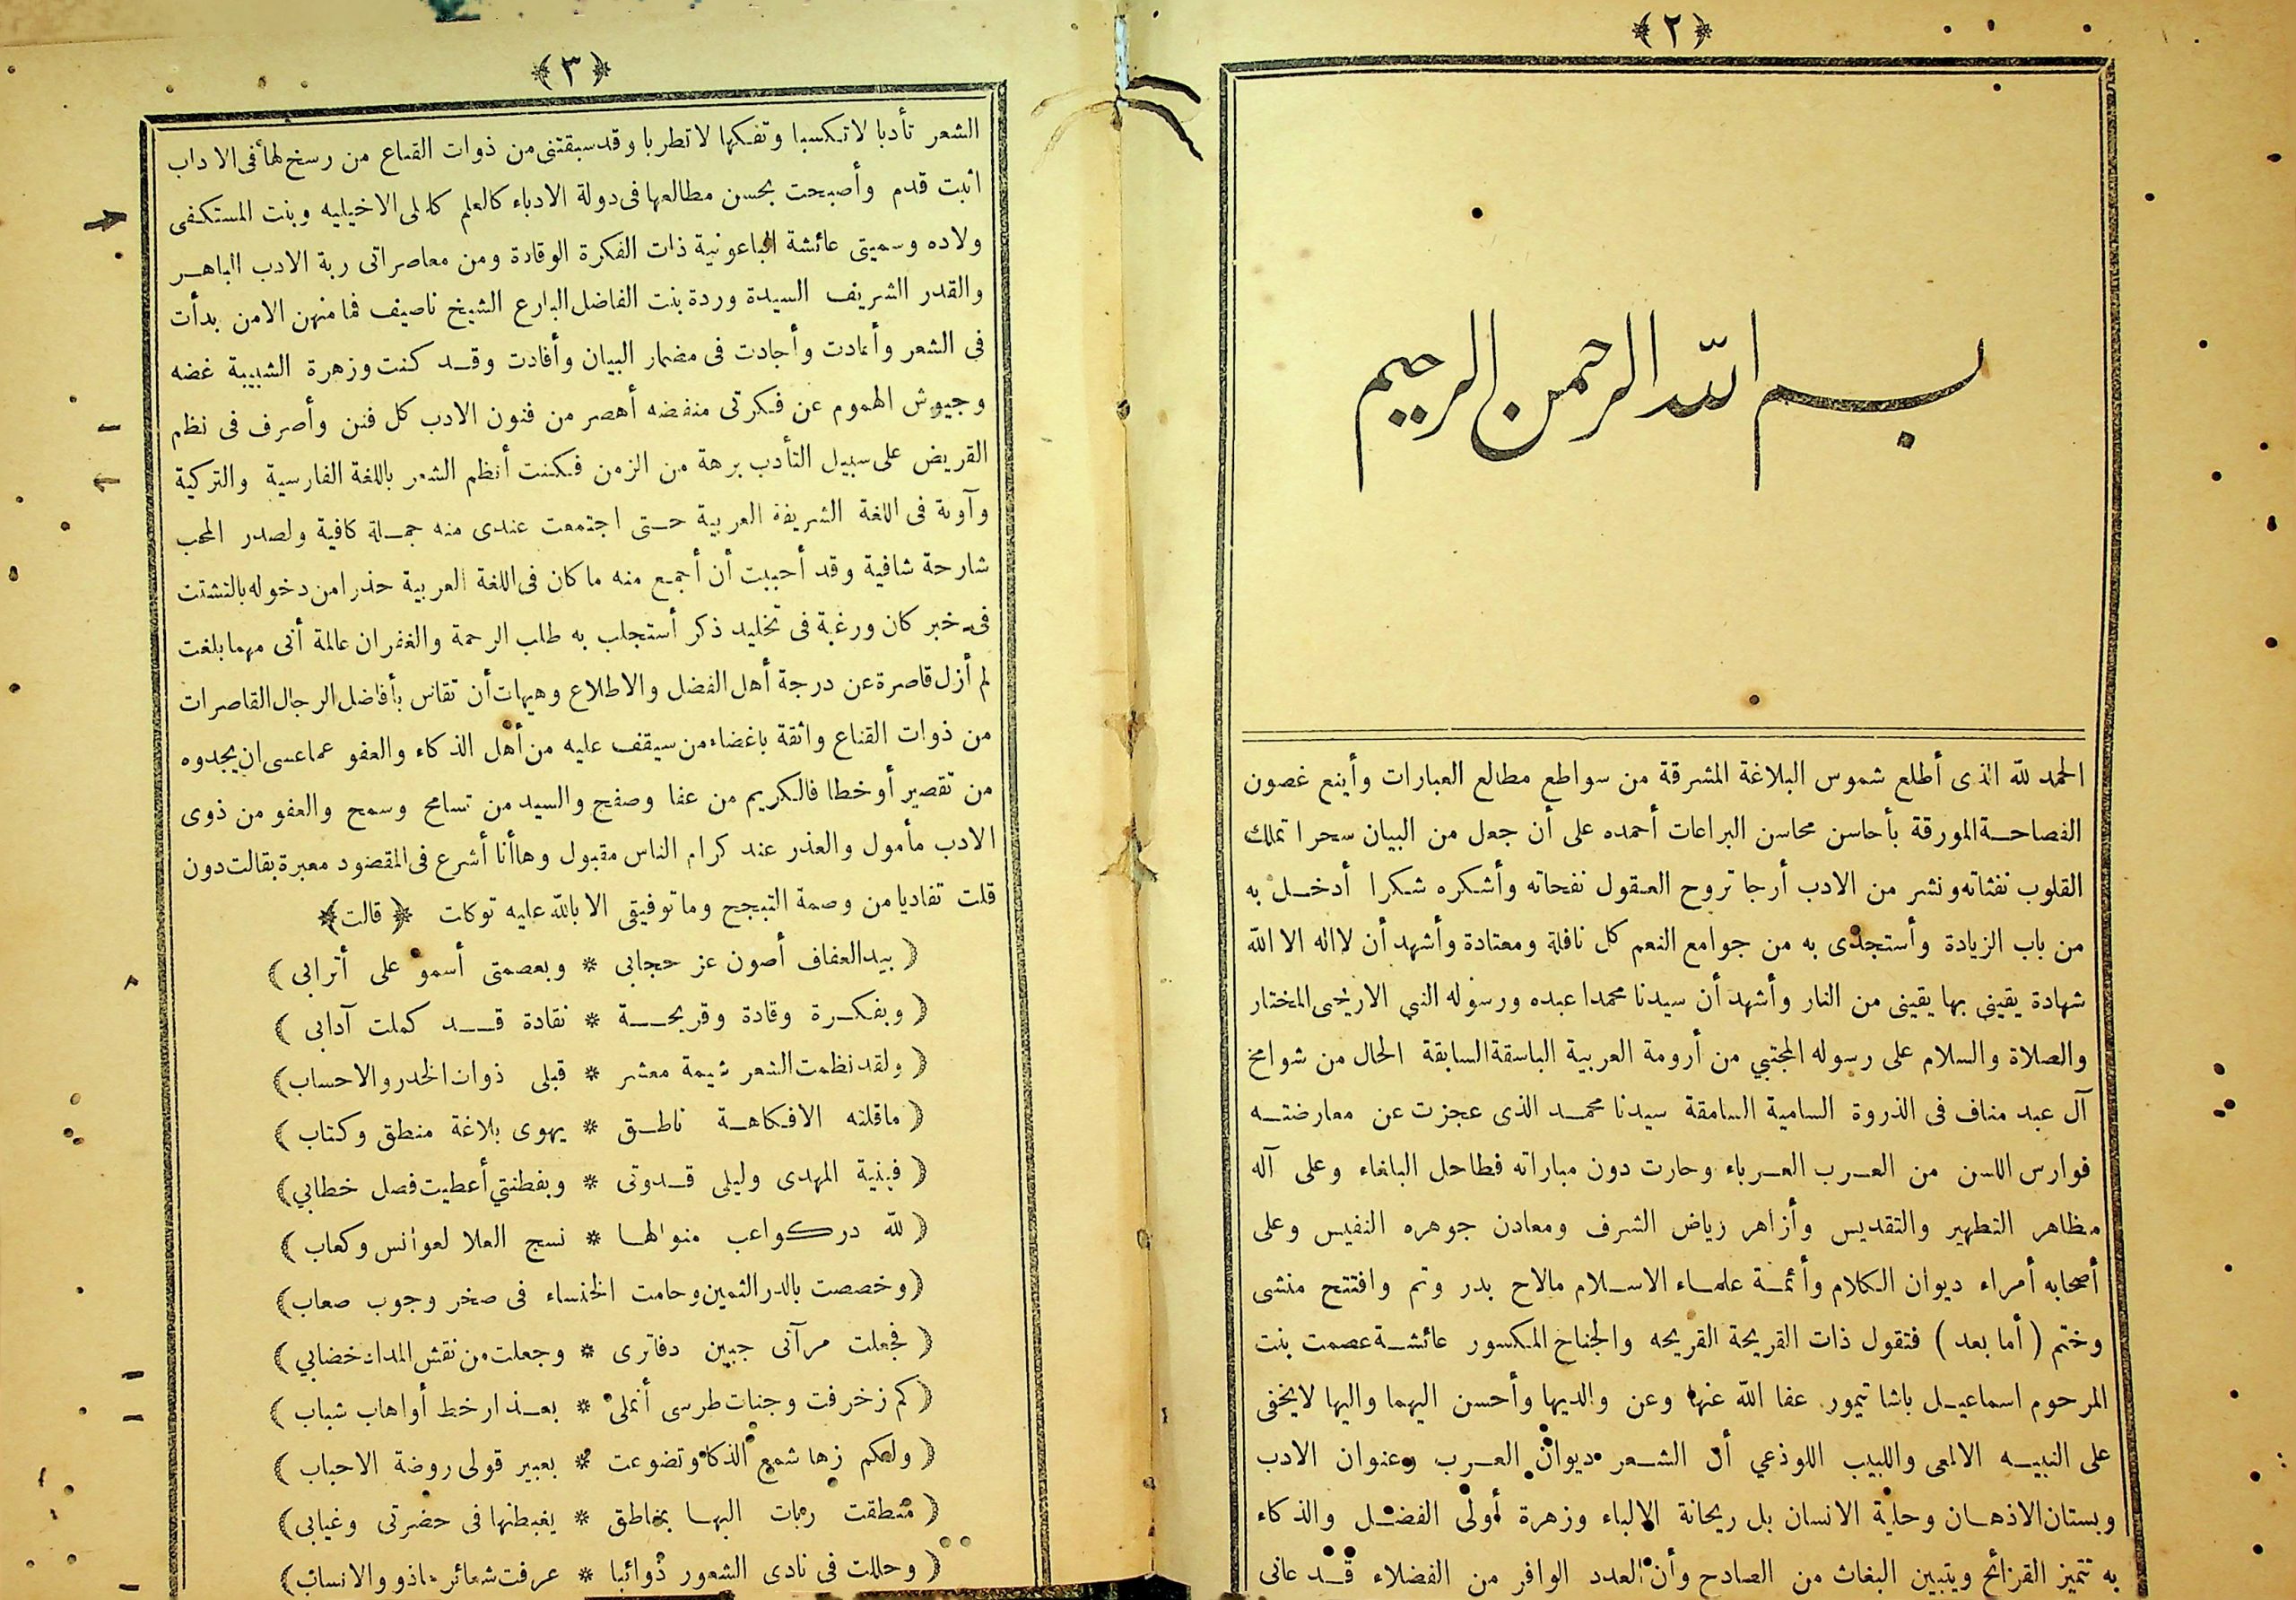 ﴿٢﴾
بسم الله الرحمن الرحيم
الحمد لله الذى أطلع شموس البلاغة المشرقة من سواطع مطالع العبارات وأينع غصون
الفصاحة المورقة بأحاسن محاسن البراعات أحمده على أن جعل من البيان سحرا تملك
القلوب نفثاته ونشر من الادب أرجا تروح العقول نفحاته وأشكره شكرا أدخل به
من باب الزيادة وأستجدى به من جوامع النعم كل نافلة ومعتادة وأشهد أن لااله الا الله
شهادة يقينى بها يقينى من النار وأشهد أن سيدنا محمدا عبده ورسوله النبي الاريحى المختار
والصلاة والسلام على رسوله المجتبي من أرومة العربية الباسقة السابقة الحال من شوامخ
آل عبد مناف فى الذروة السامية السامقة سيدنا محمد الذى عجزت عن معارضته
فوارس اللسن من العرب العرباء وحارت دون مباراته فطاحل البلغاء وعلى آله
مظاهر التطهير والتقديس وأزاهر رياض الشرف ومعادن جوهره النفيس وعلى
أصحابه أمراء ديوان الكلام وأئمة علماء الاسلام مالاح بدر وتم وافتتح منشى
وختم ( أما بعد ) فتقول ذات القريحة القريحه والجناح المكسور عائشة عصمت بنت
المرحوم اسماعيل باشا تيمور عفا الله عنها وعن والديها وأحسن اليهما واليها لايخفى
على النبيه الالمعى واللبيب اللوذعي أن الشعر ديوان العرب وعنوان الادب
وبستان الاذهان وحلية الانسان بل ريحانة الالباء وزهرة أولى الفضل والذكاء
به تتميز القرائح ويتبين البغاث من الصادح وأن العدد الوافر من الفضلاء قد عانى
﴿٣﴾
الشعر تأدبا لاتكسبا وتفكها لاتطربا وقد سبقتنى من ذوات القناع من رسخ لها فى الاداب
اثبت قدم وأصبحت بحسن مطالعها فى دولة الادباء كالعلم كليلى الاخيليه وبنت المستكفى
ولاده وسميتى عائشة الباعونية ذات الفكرة الوقادة ومن معاصراتى ربة الادب الباهر
والقدر الشريف السيدة وردة بنت الفاضل البارع الشيخ ناصيف فما منهن الامن بدأت
فى الشعر وأعادت وأجادت فى مضمار البيان وأفادت وقد كنت وزهرة الشبيبة غضه
وجيوش الهموم عن فكرتى منفضه أهصر من فنون الادب كل فنن وأصرف فى نظم
القريض على سبيل التأدب برهة من الزمن فكنت أنظم الشعر باللغة الفارسية والتركية
وآونة فى اللغة الشريفة العربية حتى اجتمعت عندى منه جملة كافية ولصدر المحب
شارحة شافية وقد أحببت أن أجمع منه ماكان فى اللغة العربية حذرا من دخوله بالتشتت
فى خبر كان ورغبة فى تخليد ذكر أستجلب به طلب الرحمة والغفران عالمة أنى مهما بلغت
لم أزل قاصرة عن درجة أهل الفضل والاطلاع وهيهات أن تقاس بأفاضل الرجال القاصرات
من ذوات القناع واثقة باغضاء من سيقف عليه من أهل الذكاء والعفو عما عسى ان يجدوه
من تقصير أو خطا فالكريم من عفا وصفح والسيد من تسامح وسمح والعفو من ذوى
الادب مأمول والعذر عند كرام الناس مقبول وها أنا أشرع فى المقصود معبرة بقالت دون
قلت تفاديا من وصمة التبجح وما توفيقى الا بالله عليه توكلت ﴿قالت﴾
( بيد العفاف أصون عز حجابى * وبعصمتى أسمو على أترابى )
( وبفكرة وقادة وقريحة * نقادة قد كملت آدابى )
( ولقد نظمت الشعر شيمة معشر * قبلى ذوات الخدر والاحساب )
( ماقلته الافكاهة ناطق * يهوى بلاغة منطق وكتاب )
( فبنية المهدى وليلى قدوتى * وبفطنتي أعطيت فصل خطابي )
( لله در كواعب منوالها * نسج العلا لعوانس وكعاب )
( وخصصت بالدر الثمين وحامت الخنساء فى صخر وجوب صعاب )
( فجعلت مرآتى جبين دفاترى * وجعلت من نقش المداد خضابي )
( كم زخرفت وجنات طرسى أنملى * بعذار خط أواهاب شباب )
( ولكم زها شمع الذكا وتضوعت * بعبير قولى روضة الاحباب )
( منطقت ربات البها بمناطق * يغبطنها فى حضرتى وغيابى )
( وحللت فى نادى الشعور ذوائبا * عرفت شعائر ذوو الانساب )